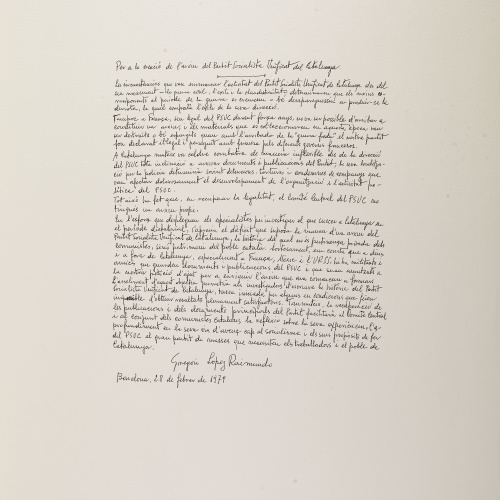 Per a la creació de l'arxiu del Partit Socialista Unificat del Catalunya
Les circumstàncies que van emmarcar l'activitat del Partit Socialista Unificat de Catalunya des del
seu naixement – la guerra civil, l'exili i la clandestinitat – determinaren que els arxius
corresponents al període de la guerra es cremessin o bé desapareguessin en produir-se la
derrota, la qual comportà l'exili de la seva direcció.
Tampoc a França, seu legal del PSUC durant força anys, va ser possible d'arribar a
constituir un arxiu, i els materials que es col·leccionaren en aquesta època, van
ser destruïts o bé espargits quan amb l'arribada de la "guerra freda" el nostre partit
fou declarat il·legal i perseguit amb duresa pels diferents governs francesos.
A Catalunya mateix un caldre combatiu de denúncia de la direcció
del PSUC tota indicació a arxivar documents i publicacions del Partit; la seva localització
per la policia determinà sovint detencions, tortures i condemnes de companys que
van afectar dolorosament el desenvolupament de l'organització i l'activitat política
del PSUC.
Tot això ha fet que, en recuperar la legalitat, el Comitè Central del PSUC no
tingués un arxiu propi.
En l'esforç que despleguen els especialistes per investigar el que succeí a Catalunya en
el període d'
Partit Socialista Unificat de Catalunya, la història del qual
comunistes, sinó patrimoni del poble català. Sortosament,
i a fora de Catalunya, especialment a França, Mèxic i l'URSS, hi ha entitats i
amics que guarden documents i publicacions del PSUC i que
la nostra petició d'ajut per a enriquir l'arxiu que ara comencem a formar.
L'assoliment d'aquest objectiu permetrà als investigadors d'escriure la història del Partit
Socialista Unificat de Catalunya, tasca iniciada per alguns en condicions que feien
impossible d'obtenir resultats plenament satisfactoris. Tanmateix, la recuperació de
les publicacions i dels documents principals del Partit facilitarà al Comitè Central
i al conjunt dels comunistes catalans, la reflexió sobre la seva experiència, l'aprofundiment
en la seva via d'avenç cap al socialisme i els seus propòsits de fer
del PSUC el gran partit de masses que necessiten els treballadors i el poble de
Catalunya.
Gregori López Raimundo
Barcelona, 28 de febrer de 1979